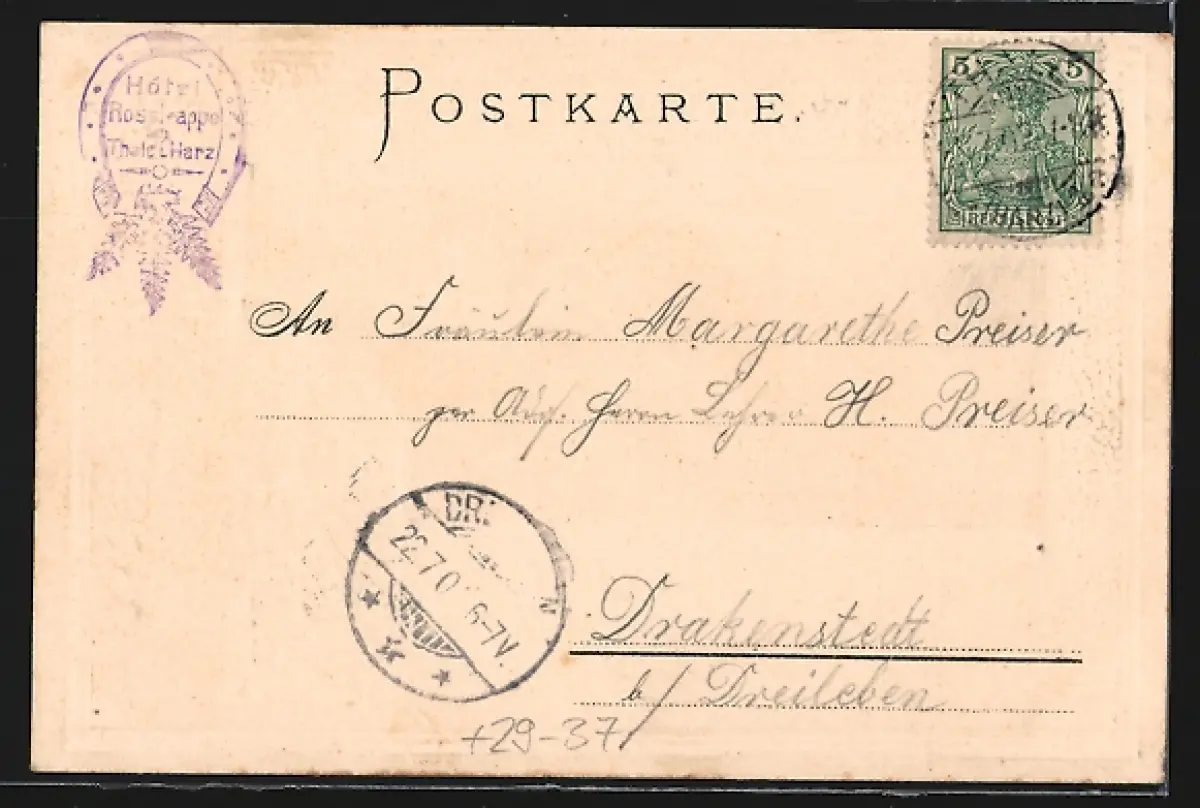 Hôtel
Rosstrappe
Thale i. Harz
POSTKARTE.
5 5
REICHSPOST
An Fräulein Margarethe Preiser
per Adr. Herrn Lehrer H. Preiser
DR. N
22.7.0 6-7V.
Drakenstedt
b/ Dreileben
+29-37